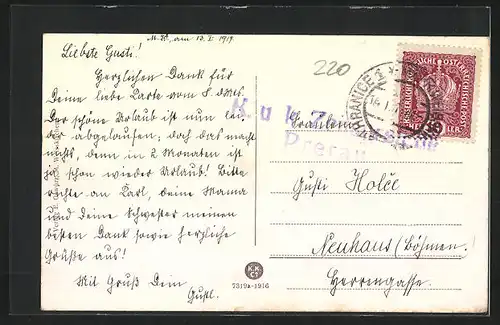 M. W., am 13. I. 1917.
Liebste Gusti!
Herzlichen Dank für
Deine liebe Karte vom 8. d. Mts.
Der schöne Urlaub ist nun lei-
der abgelaufen; doch das macht
nichts, denn in 2 Monaten ist
ja schon wieder Urlaub! Bitte
richte an Karl, Deine Mama
und Deine Schwester meinen
besten Dank sowie herzliche
Grüße aus!
Mit Gruß Dein
Gustl.
220
K u k Z
Prerau
HRANICE
KAISERLICHE KÖNIGLICHE ÖSTERREICHISCHE POST
HELLER
Fräulein
Gusti Holče
Neuhaus (Böhmen.
Herrengasse.
K.K.
C?
7319a-1916